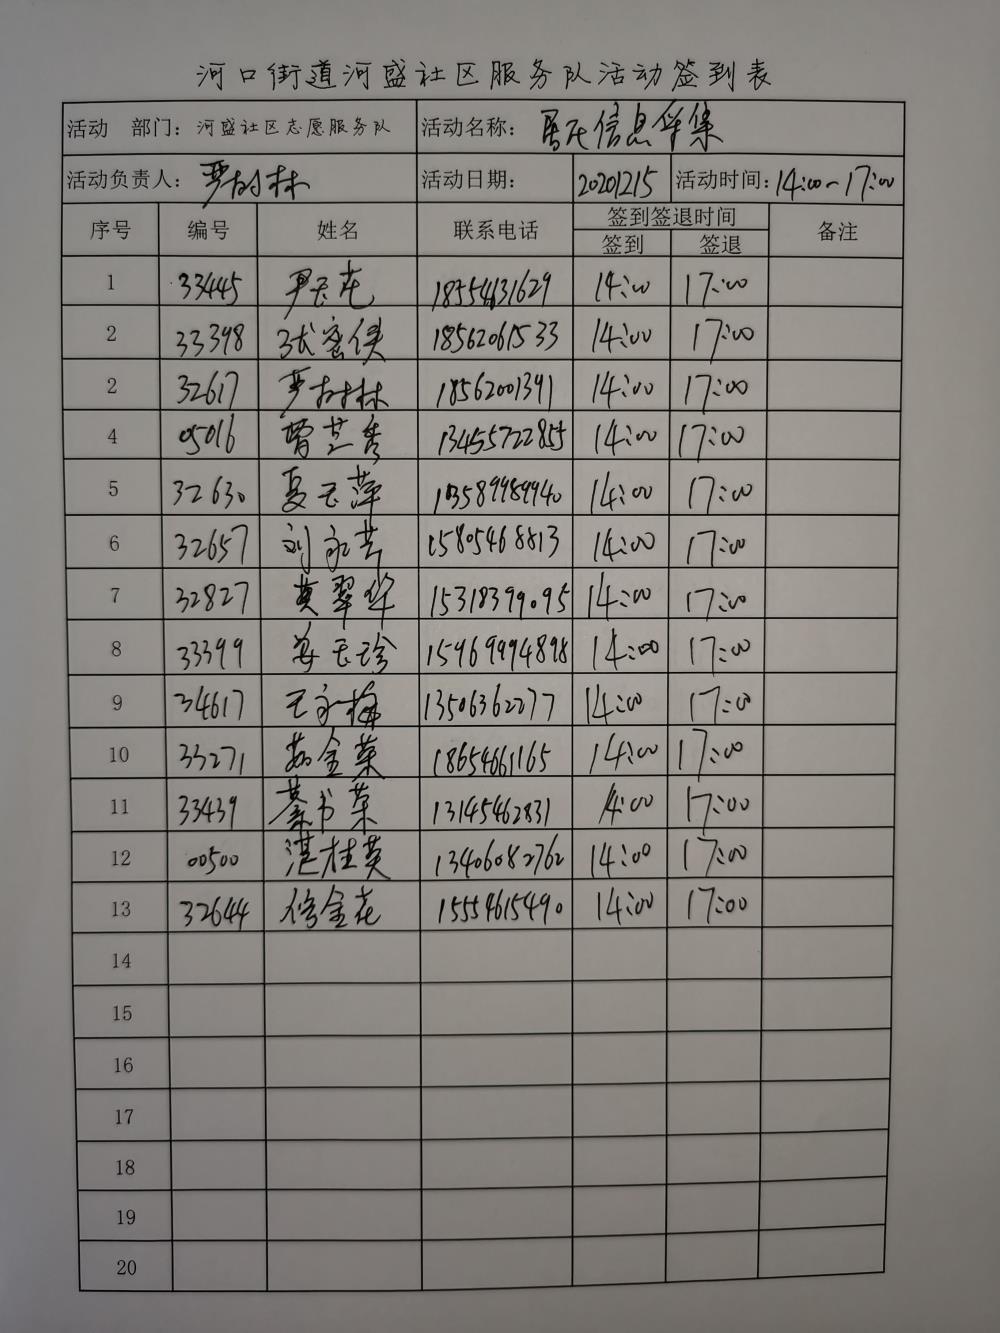 河口街道河盛社区服务队活动签到表
活动 部门：河盛社区志愿服务队 活动名称：居民信息采集
活动负责人：严树林 活动日期： 20201215 活动时间：14:00~17:00
序号 编号 姓名 联系电话 签到签退时间 备注
签到 签退
1 33445 尹玉花 18554631629 14:00 17:00
2 33398 张密侠 18562061533 14:00 17:00
2 32617 严树林 18562001391 14:00 17:00
4 05016 曹兰秀 13455722855 14:00 17:00
5 32630 夏玉萍 14:00 17:00
6 32657 刘永芹 15805468813 14:00 17:00
7 32827 黄翠华 15318399095 14:00 17:00
8 33399 姜玉珍 15969994898 14:00 17:00
9 34617 王永梅 13506362277 14:00 17:00
10 33271 茹金菜 18654661165 14:00 17:00
11 33439 綦书菜 13145462831 14:00 17:00
12 00500 湛桂英 13406082762 14:00 17:00
13 32644 修金花 15554615490 14:00 17:00
14
15
16
17
18
19
20